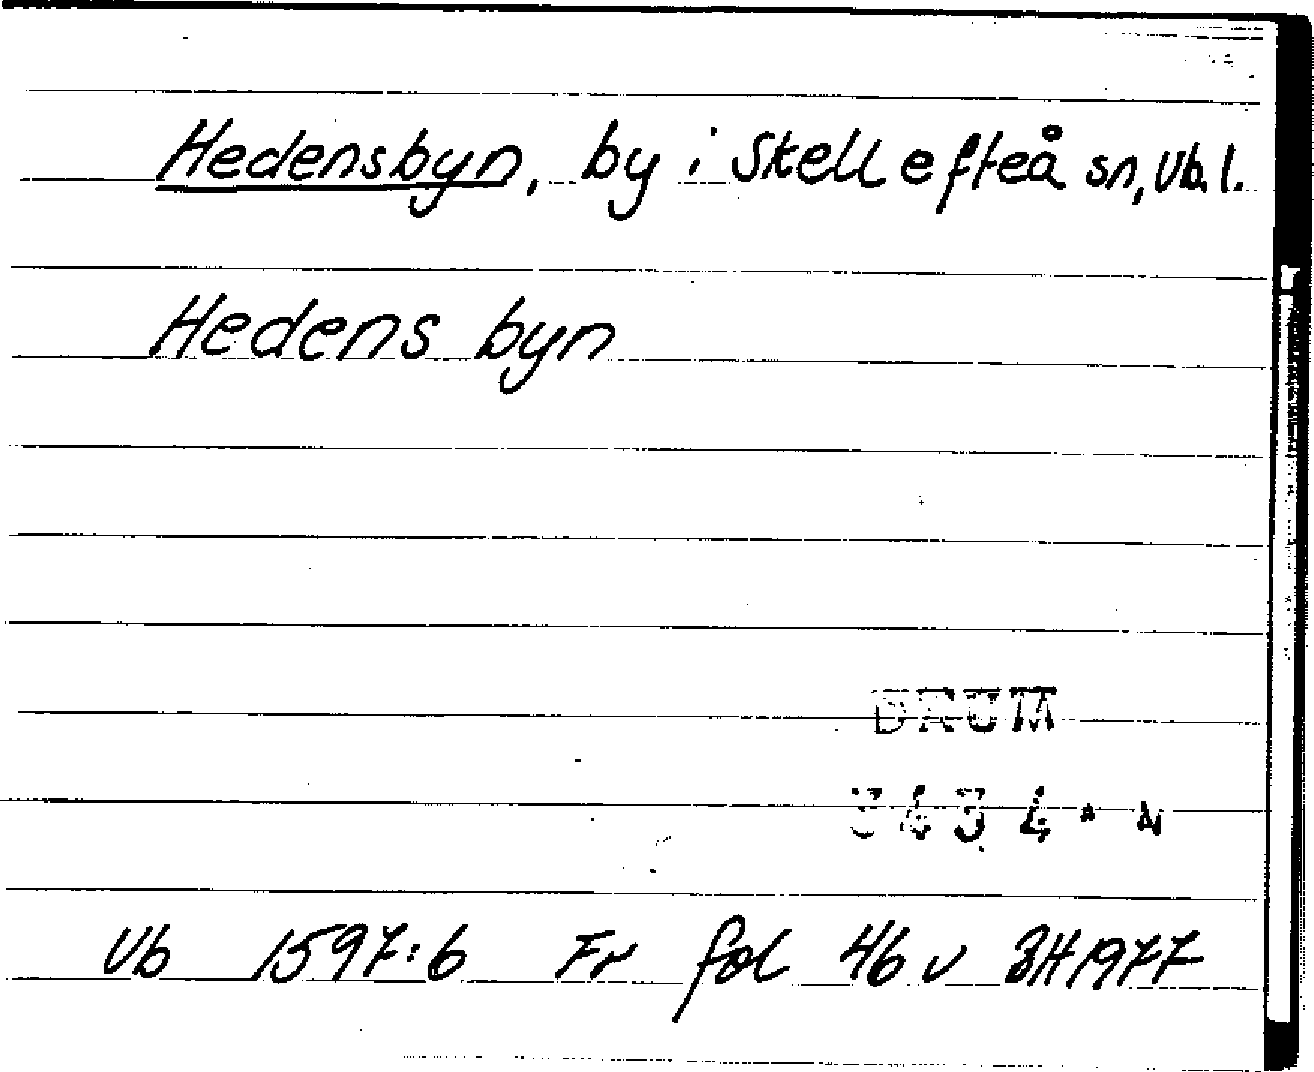 Hedensbyn, by i Skellefteå sn, Vb. l.
Hedens byn
DAUM
3434
Vb 1597:6 Fr fol 46 v BH 1977